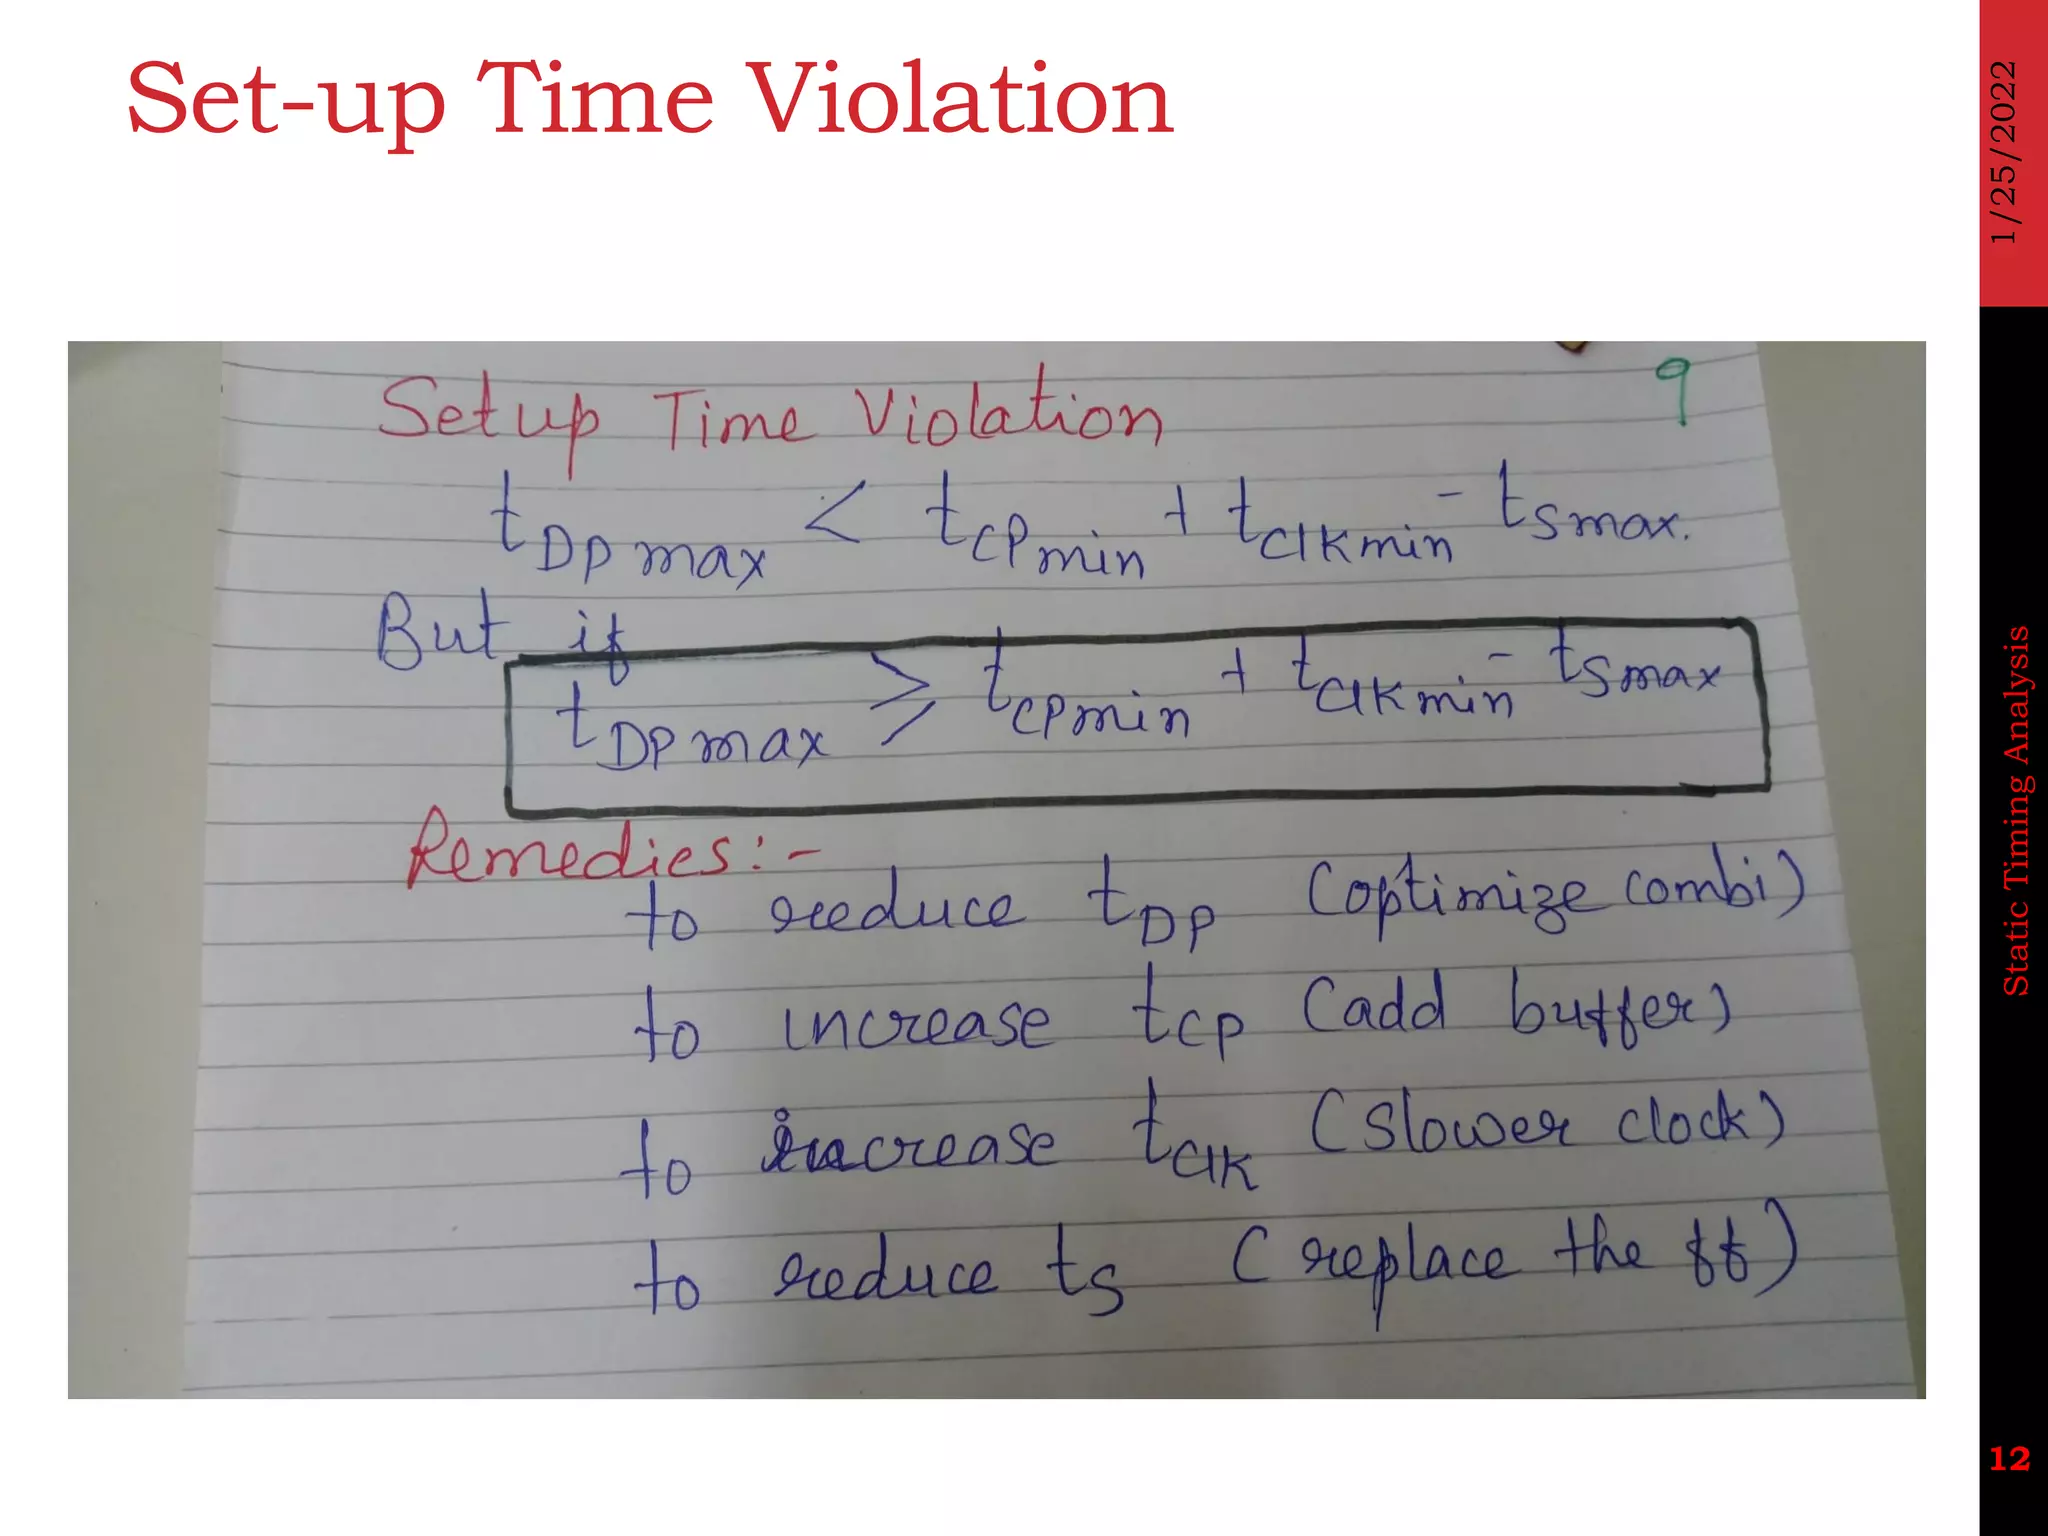 Set-up Time Violation
1/25/2022
Setup Time Violation 9
tDPmax < tCPmin + tClkmin - tSmax.
But if
tDPmax ≥ tCPmin + tClkmin - tSmax
Remedies:-
to reduce tDP (optimize combi)
to increase tCP (add buffer)
to increase tClk (slower clock)
to reduce ts (replace the ff)
Static Timing Analysis
12